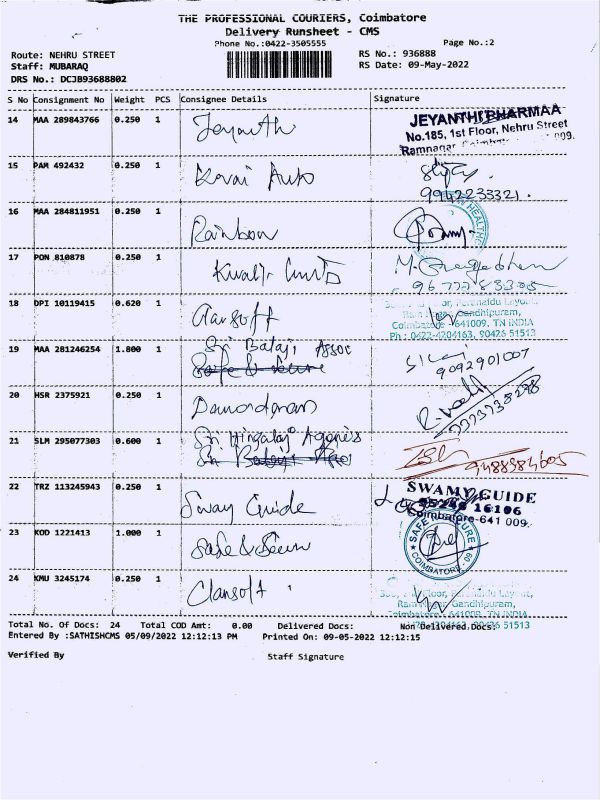 THE PROFESSIONAL COURIERS, Coimbatore
Delivery Runsheet - CMS
Phone No.:0422-3505555 Page No.:2
Route: NEHRU STREET RS No.: 936888
Staff: MUBARAQ RS Date: 09-May-2022
DRS No.: DCJB93688802
S No Consignment No Weight PCS Consignee Details Signature
14 MAA 289843766 0.250 1 Jeyanth JEYANTHI PHARMAA
No.185, 1st Floor, Nehru Street
Ramnagar 009.
15 PAM 492432 0.250 1 Kovai Auto
9942233321.
16 MAA 284811951 0.250 1 Rainbow
17 PON 810878 0.250 1
9677783305
18 DPI 10119415 0.620 1
Gandhipuram,
Coimbatore -641009. TN INDIA
Ph : 0422-4204163, 90426 51513
19 MAA 281246254 1.800 1 Sri Balaji Assoc
Safe & Secure
9092901007
20 HSR 2375921 0.250 1 Damordaran
21 SLM 295077303 0.600 1 Sri Hingalaj Agencies
Sri Balaji Asso
22 TRZ 113245943 0.250 1 Sway Guide SWAMY GUIDE
16106
Coimbatore-641 009.
23 KOD 1221413 1.000 1 Safe & Secure SAFE SECURE
COIMBATORE - 09
24 KMU 3245174 0.250 1 Clansoft
Gandhipuram,
90426 51513
Total No. Of Docs: 24 Total COD Amt: 0.00 Delivered Docs: Non Delivered Docs:
Entered By :SATHISHCMS 05/09/2022 12:12:13 PM Printed On: 09-05-2022 12:12:15
Verified By Staff Signature